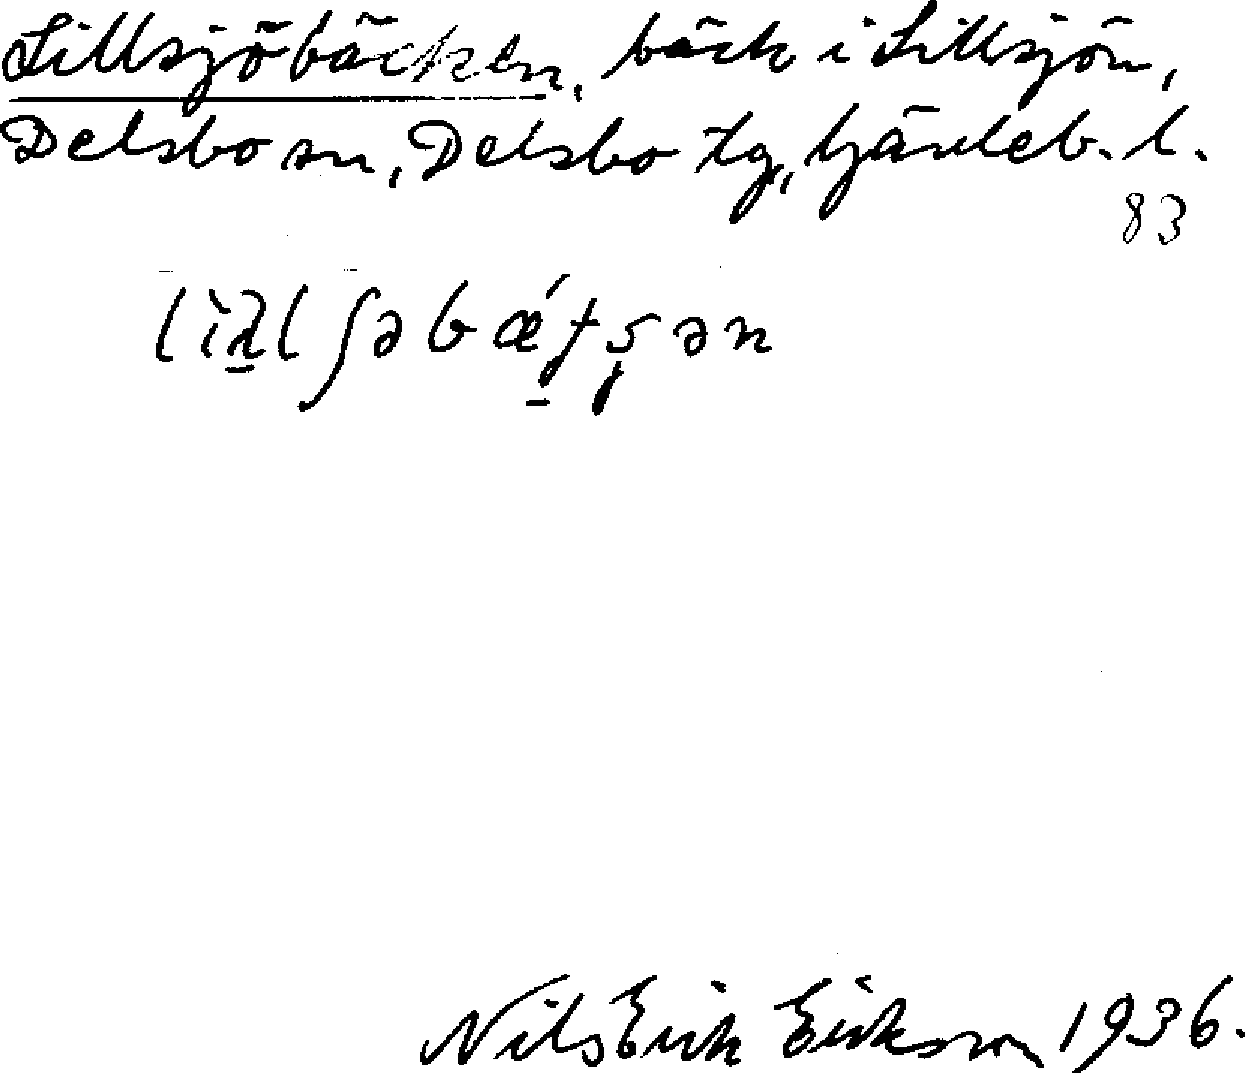 Lillsjöbäcken, bäck i Lillsjön,
Delsbo sn, Delsbo tg, Gävleb. l.
83
Nils Erik Eriksson 1936.